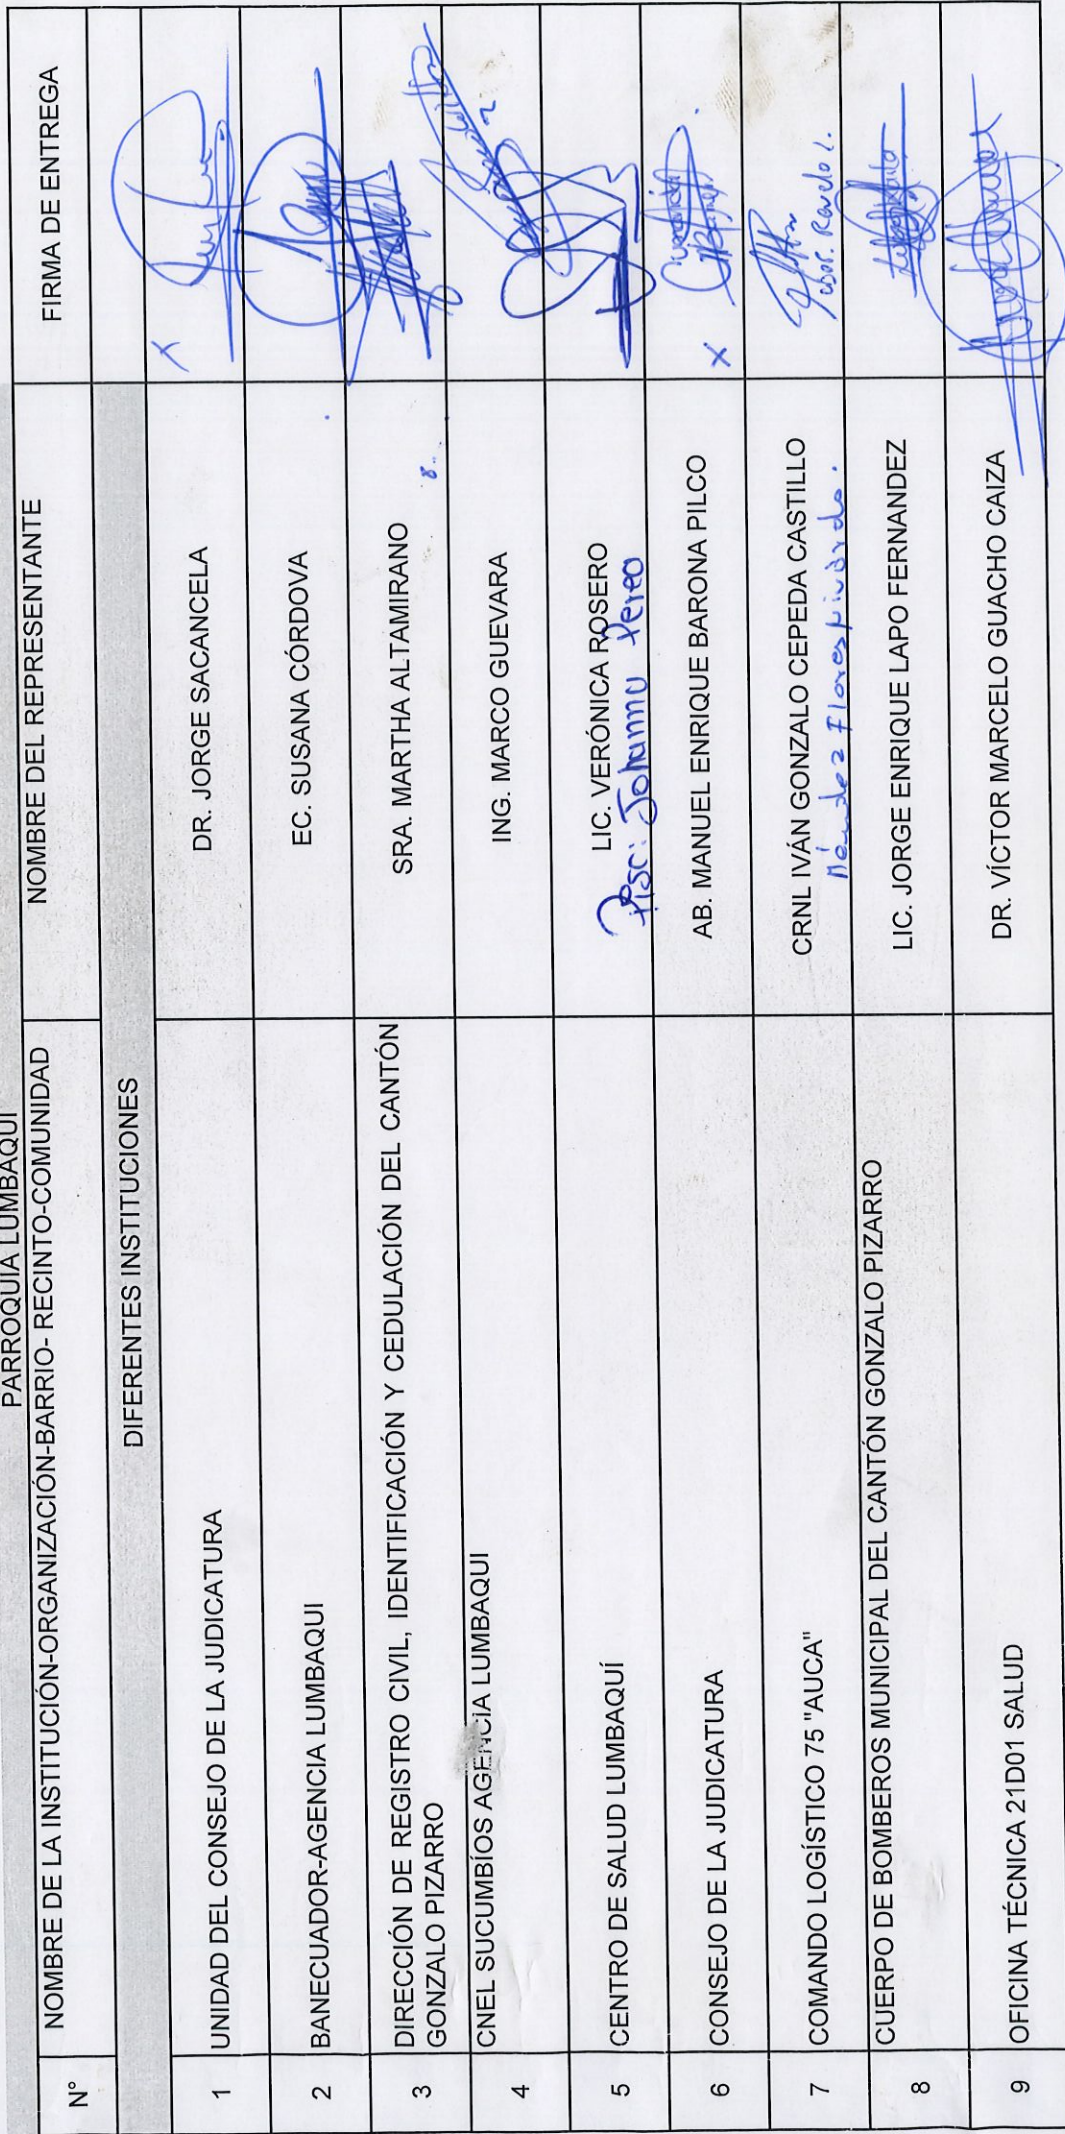 PARROQUIA LUMBAQUI
N° NOMBRE DE LA INSTITUCIÓN-ORGANIZACIÓN-BARRIO- RECINTO-COMUNIDAD NOMBRE DEL REPRESENTANTE FIRMA DE ENTREGA
DIFERENTES INSTITUCIONES
1 UNIDAD DEL CONSEJO DE LA JUDICATURA DR. JORGE SACANCELA X
2 BANECUADOR-AGENCIA LUMBAQUI EC. SUSANA CÓRDOVA
3 DIRECCIÓN DE REGISTRO CIVIL, IDENTIFICACIÓN Y CEDULACIÓN DEL CANTÓN
GONZALO PIZARRO SRA. MARTHA ALTAMIRANO
4 CNEL SUCUMBÍOS AGENCIA LUMBAQUI ING. MARCO GUEVARA
5 CENTRO DE SALUD LUMBAQUÍ LIC. VERÓNICA ROSERO
Johanna
6 CONSEJO DE LA JUDICATURA AB. MANUEL ENRIQUE BARONA PILCO X
7 COMANDO LOGÍSTICO 75 "AUCA" CRNL IVÁN GONZALO CEPEDA CASTILLO
Méndez Flores
8 CUERPO DE BOMBEROS MUNICIPAL DEL CANTÓN GONZALO PIZARRO LIC. JORGE ENRIQUE LAPO FERNANDEZ
9 OFICINA TÉCNICA 21D01 SALUD DR. VÍCTOR MARCELO GUACHO CAIZA